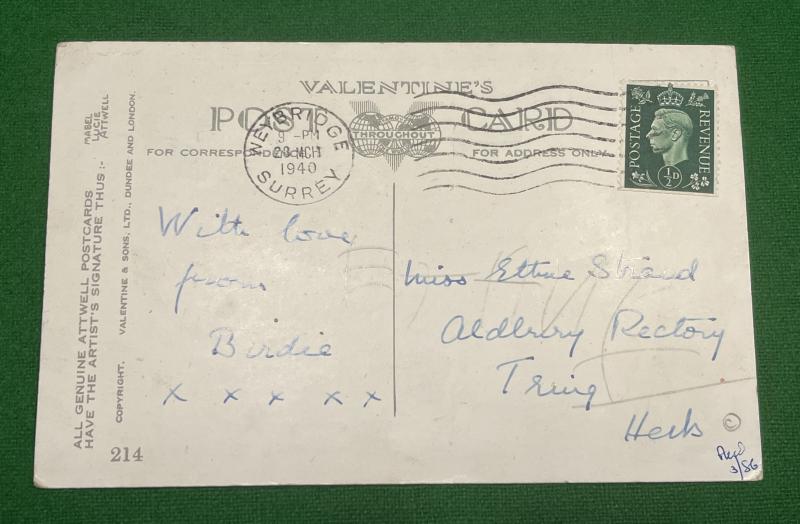 VALENTINE'S
POST CARD
THROUGHOUT
FOR CORRESPONDENCE
FOR ADDRESS ONLY
WEYBRIDGE
9 - PM
28 MCH
1940
SURREY
POSTAGE
REVENUE
½D
With love
from
Birdie
x x x x x
Miss Strand
Aldbury Rectory
Tring
Herts
©
3/86
ALL GENUINE ATTWELL POSTCARDS
HAVE THE ARTIST'S SIGNATURE THUS :-
MABEL
LUCIE
ATTWELL
COPYRIGHT. VALENTINE & SONS, LTD., DUNDEE AND LONDON.
214